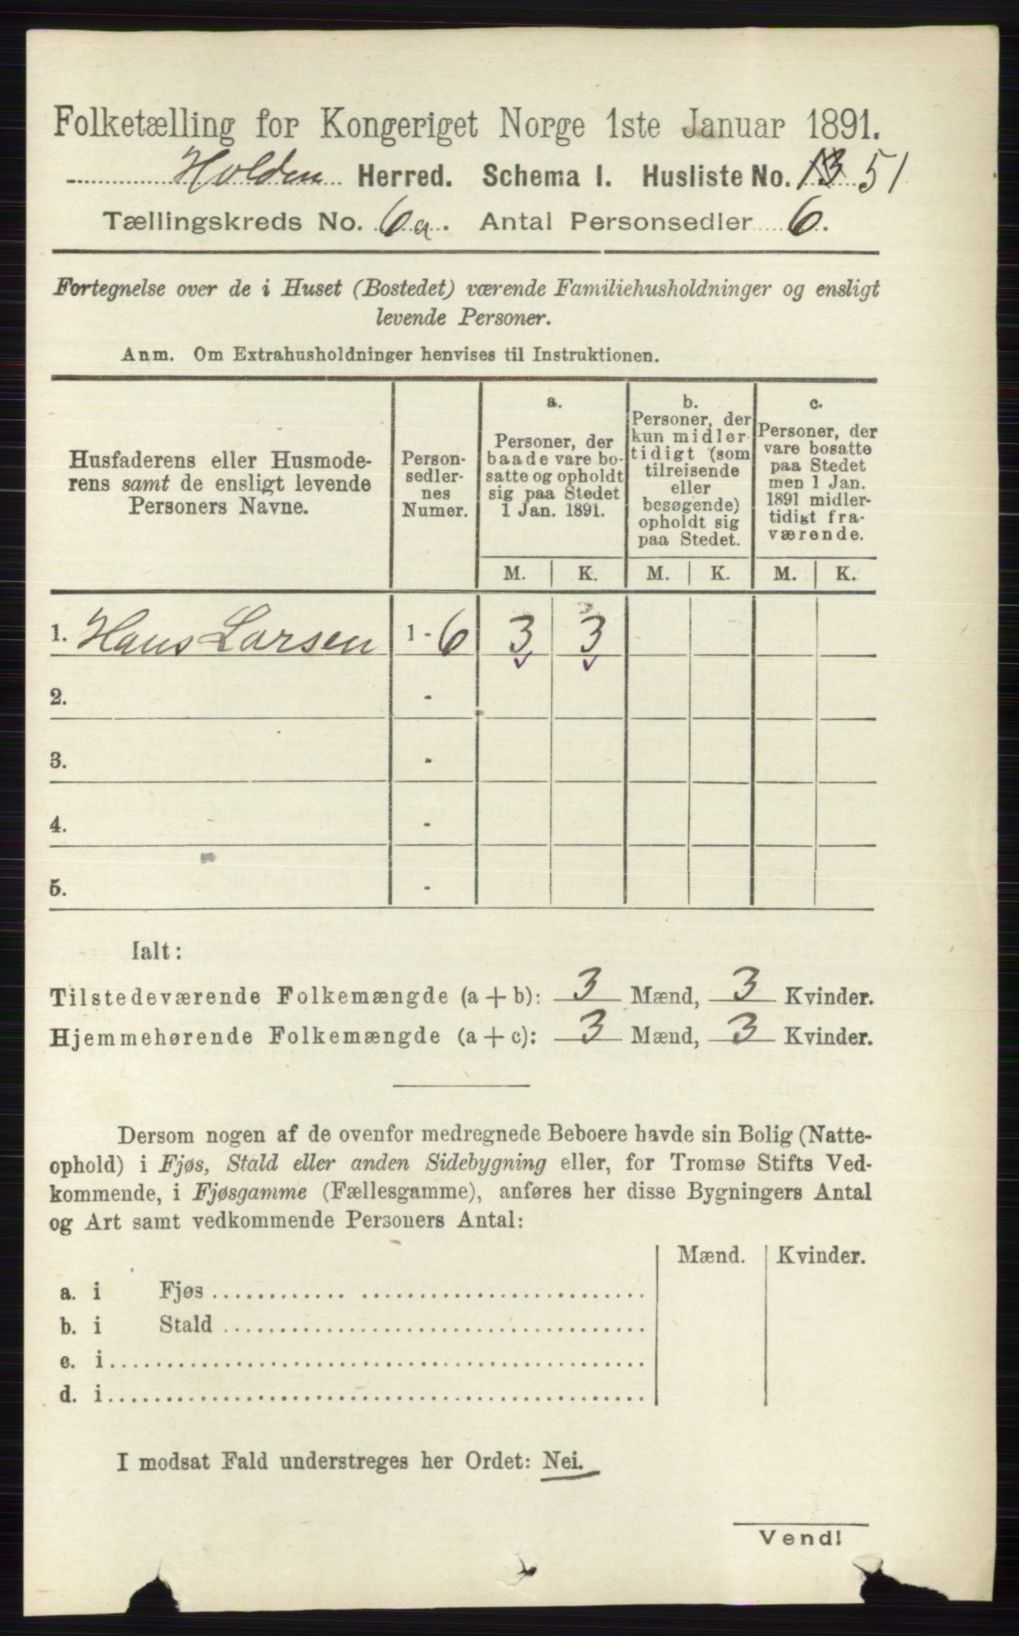 Folketælling for Kongeriget Norge 1ste Januar 1891.
Holden Herred. Schema I. Husliste No. 13 51
Tællingskreds No. 6a. Antal Personsedler 6.
Fortegnelse over de i Huset (Bostedet) værende Familiehusholdninger og ensligt
levende Personer.
Anm. Om Extrahusholdninger henvises til Instruktionen.
Husfaderens eller Husmode-
rens samt de ensligt levende
Personers Navne.
Person-
sedler-
nes
Numer.
a.
Personer, der
baade vare bo-
satte og opholdt
sig paa Stedet
1 Jan. 1891.
b.
Personer, der
kun midler-
tidigt (som
tilreisende
eller
besøgende)
opholdt sig
paa Stedet.
c.
Personer, der
vare bosatte
paa Stedet
men 1 Jan.
1891 midler-
tidigt fra-
værende.
M. K. M. K. M. K.
1. Hans Larsen 1 - 6 3 3
2. -
3. -
4. -
5. -
Ialt:
Tilstedeværende Folkemængde (a + b): 3 Mænd, 3 Kvinder.
Hjemmehørende Folkemængde (a + c): 3 Mænd, 3 Kvinder.
Dersom nogen af de ovenfor medregnede Beboere havde sin Bolig (Natte-
ophold) i Fjøs, Stald eller anden Sidebygning eller, for Tromsø Stifts Ved-
kommende, i Fjøsgamme (Fællesgamme), anføres her disse Bygningers Antal
og Art samt vedkommende Personers Antal:
Mænd. Kvinder.
a. i Fjøs
b. i Stald
c. i
d. i
I modsat Fald understreges her Ordet: Nei.
Vend!